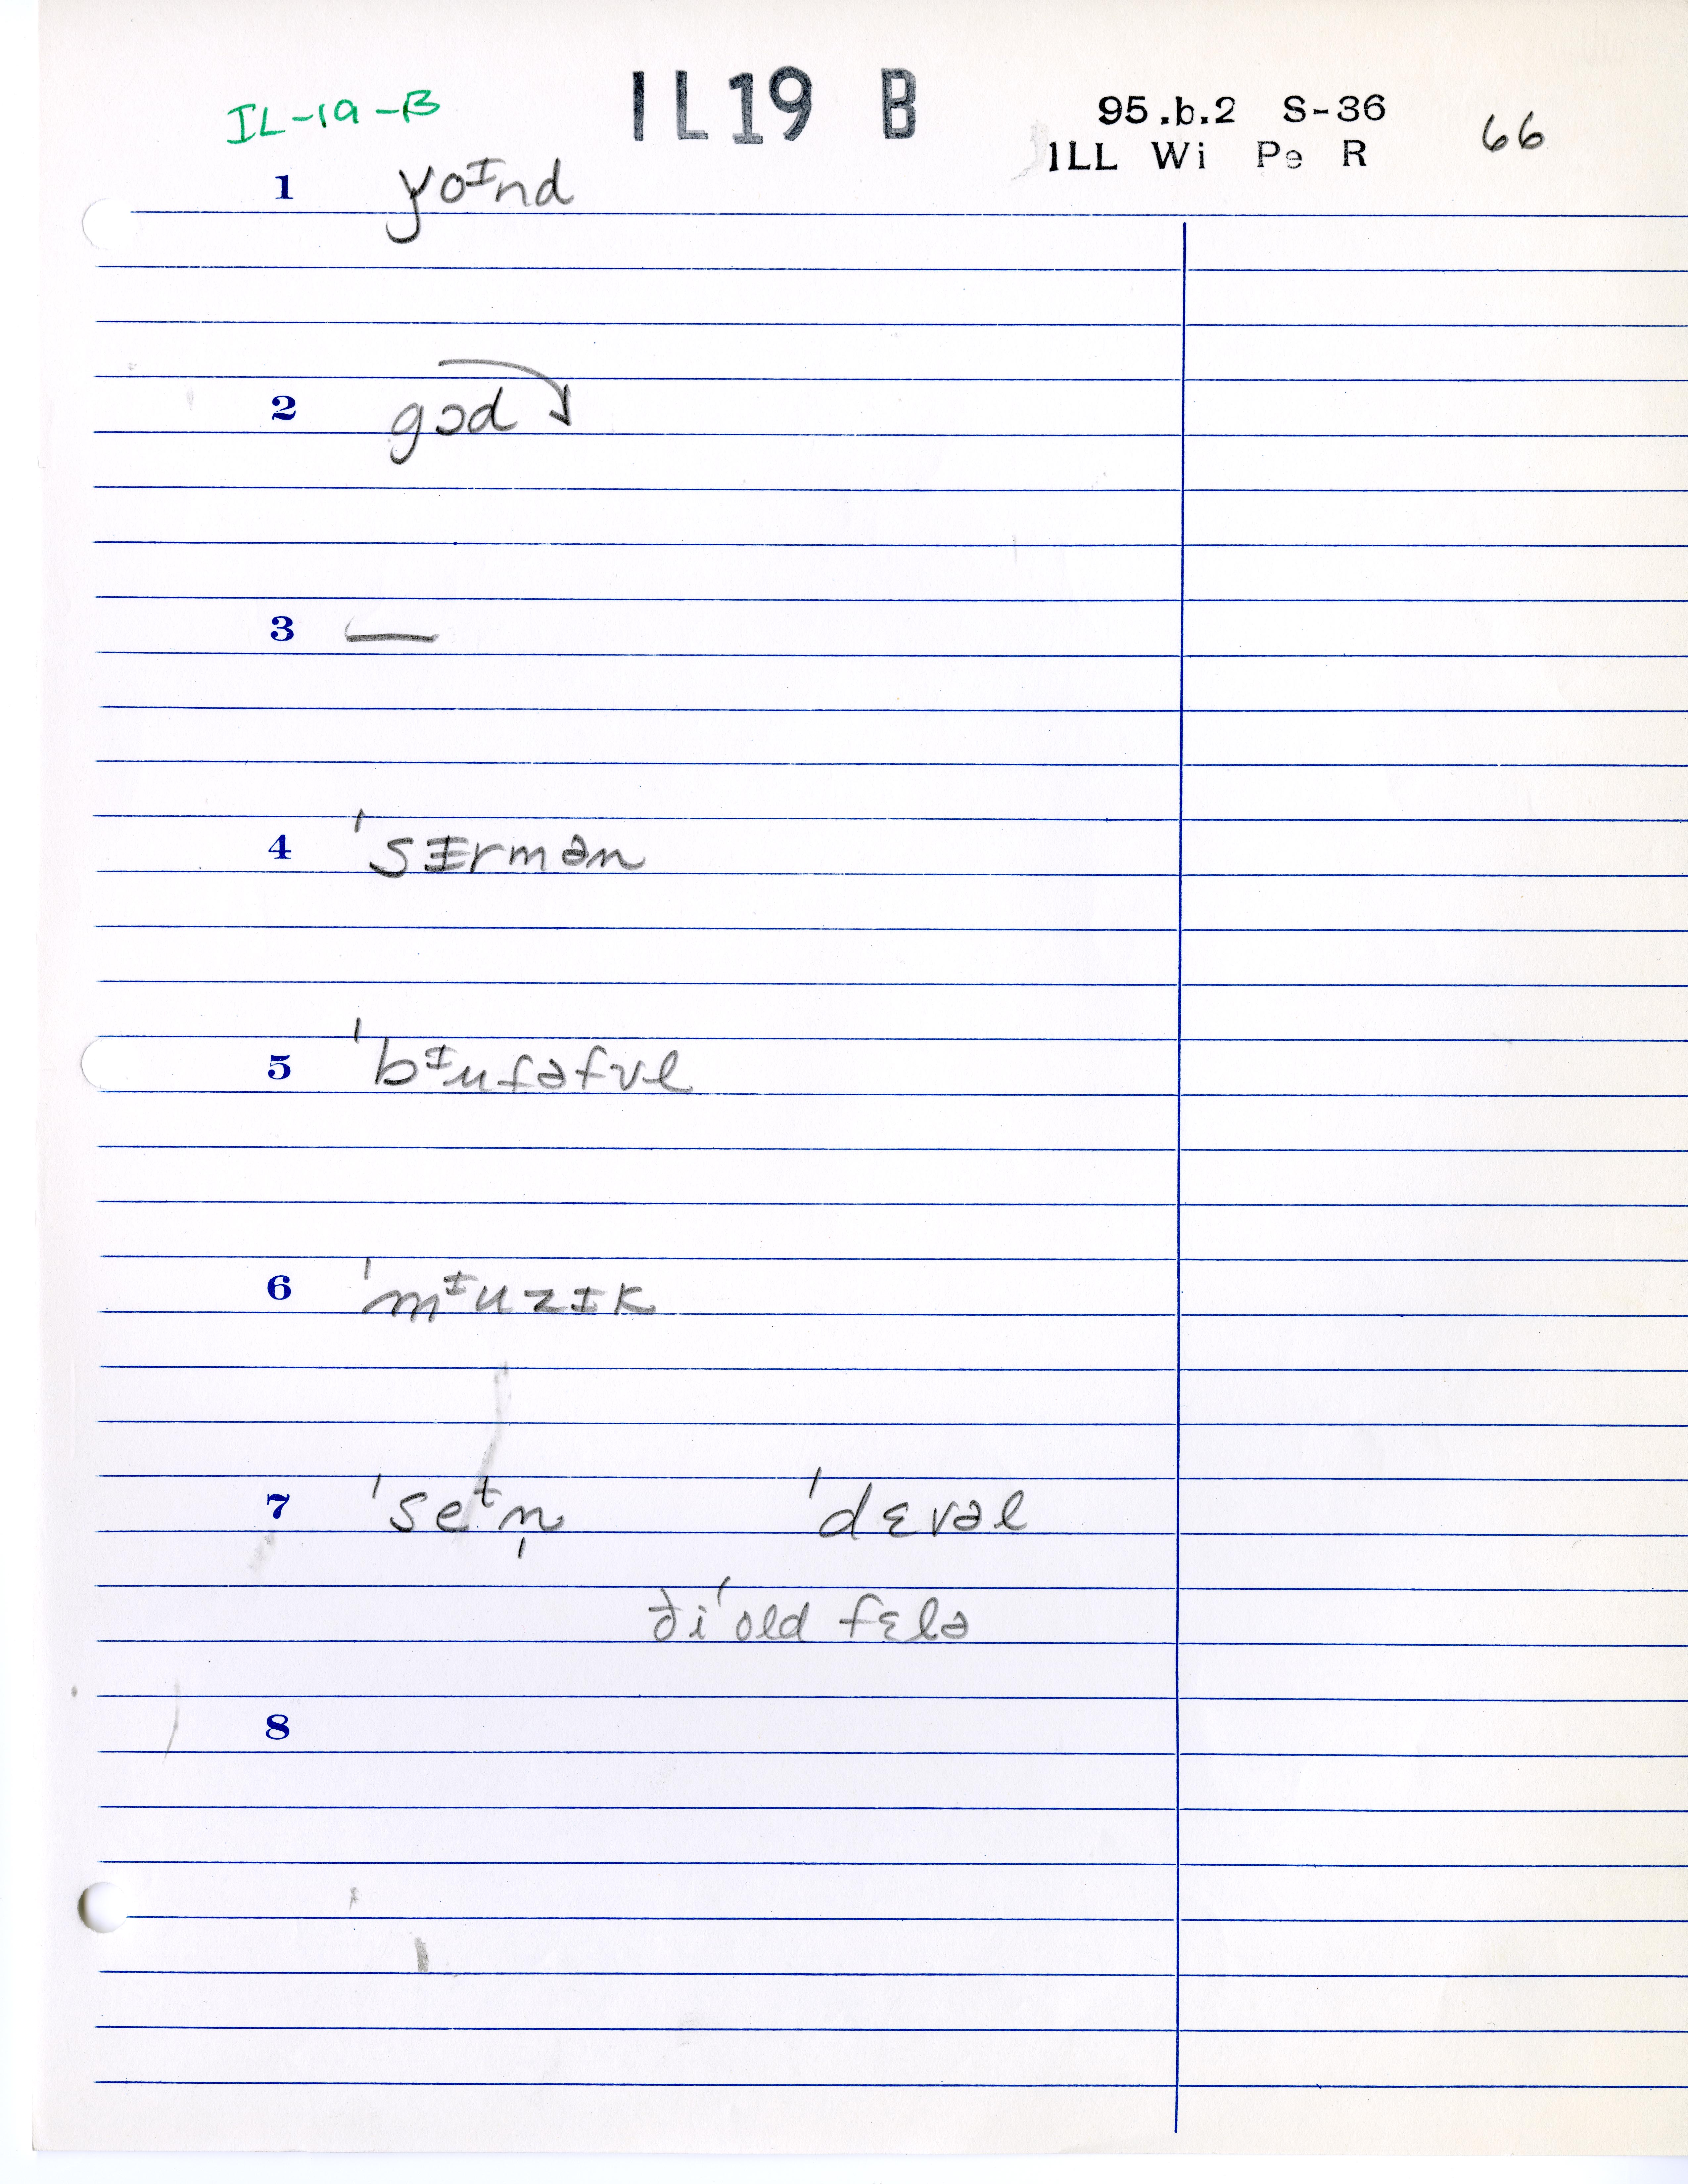 IL-19-B IL19 B 95.b.2 S-36 66
ILL Wi Pe R
1 ɣoᶦnd
2 gɔd
3 —
4 ˈsɪrmən
5 ˈbᶦufəfʊl
6 ˈmᶦuzɪk
7 ˈseᵗn̩ ˈdɛvəl
ðiˈold fɛlə
8